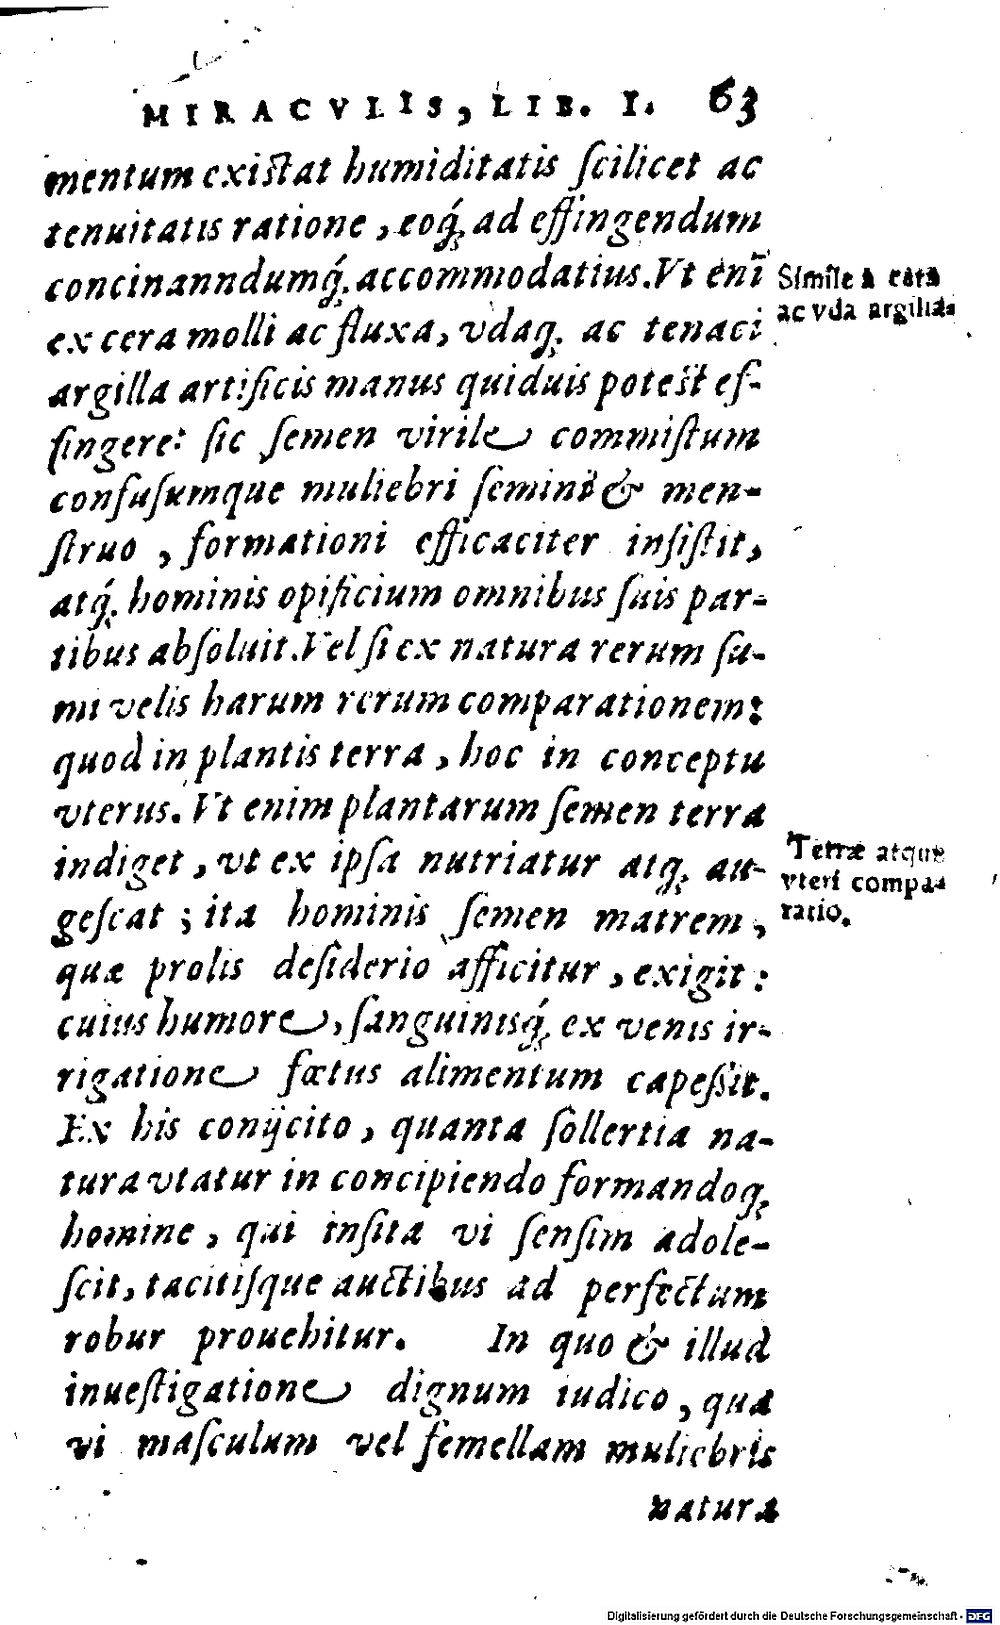 MIRACVLIS, LIB. I. 63
mentum existat humiditatis ſcilicet ac
tenuitatis ratione, eoq́; ad effingendum
concinanndumq́; accommodatius. Vt enī
Simile à cera
ex cera molli ac fluxa, vdaq; ac tenaci
ac vda argilla.
argilla artificis manus quiduis poteſt ef-
fingere: ſic ſemen virile commiſtum
confuſumque muliebri ſemini & men-
ſtruo, formationi efficaciter inſiſtit,
atq́; hominis opificium omnibus ſuis par-
tibus abſoluit. Vel ſi ex natura rerum ſu-
mi velis harum rerum comparationem:
quod in plantis terra, hoc in conceptu
vterus. Vt enim plantarum ſemen terra
Terræ atque
indiget, vt ex ipſa nutriatur atq; au-
vteri compa-
geſcat; ita hominis ſemen matrem,
ratio.
quæ prolis deſiderio afficitur, exigit:
cuius humore, ſanguinisq́; ex venis ir-
rigatione fœtus alimentum capeſsit.
Ex his conijcito, quanta ſollertia na-
tura vtatur in concipiendo formandoq;
homine, qui inſita vi ſenſim adole-
ſcit, tacitiſque auctibus ad perfectum
robur prouehitur. In quo & illud
inueſtigatione dignum iudico, qua
vi maſculum vel femellam muliebris
natura
Digitalisierung gefördert durch die Deutsche Forschungsgemeinschaft - DFG